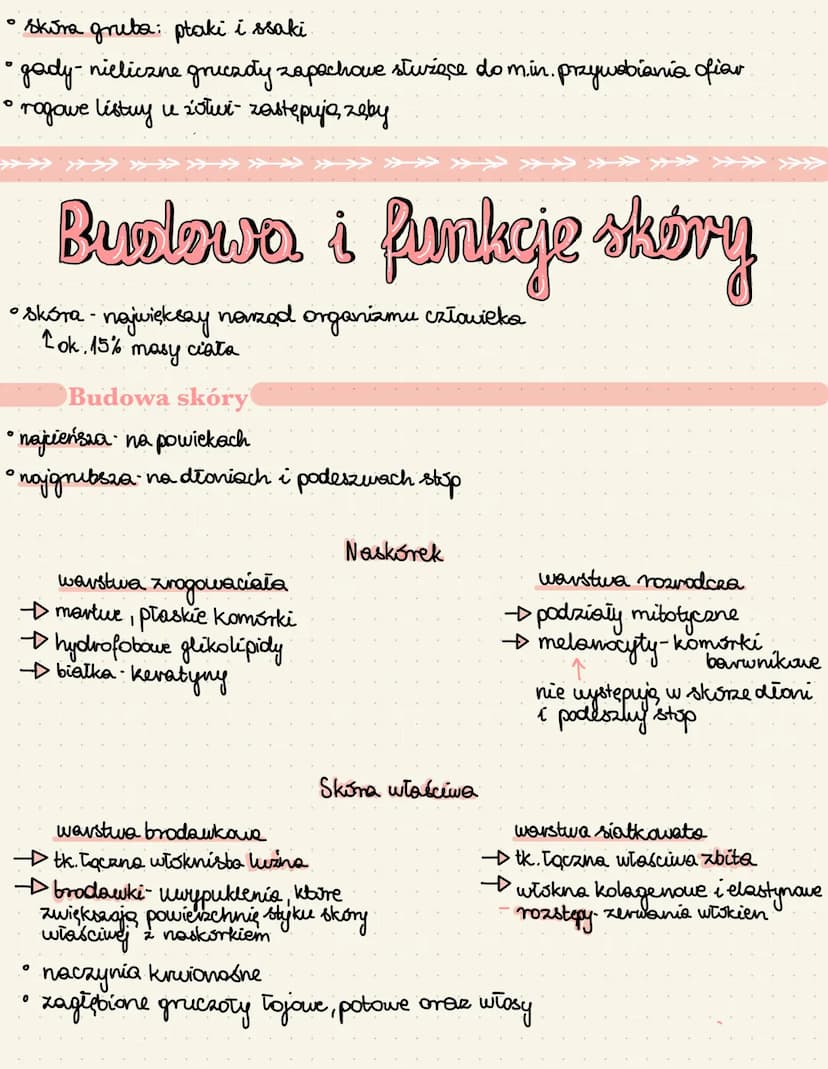 • skóra gruba: ptaki i ssaki
• gady - nieliczne gruczoły zapachowe służące do m.in. przywabiania ofiar
• rogowe listwy u żółwi - zastępują zęby
Budowa i funkcje skóry
• skóra - największy narząd organizmu człowieka
↑ ok. 15% masy ciała
Budowa skóry
• najcieńsza - na powiekach
• najgrubsza - na dłoniach i podeszwach stóp
Naskórek
warstwa zrogowaciała
→ martwe, płaskie komórki
→ hydrofobowe glikolipidy
→ białka - keratyny
warstwa rozrodcza
→ podziały mitotyczne
→ melanocyty - komórki
barwnikowe
↑
nie występują w skórze dłoni
i podeszwy stóp
Skóra właściwa
warstwa brodawkowa
→ tk. łączna włóknista luźna
→ brodawki - uwypuklenia, które
zwiększają powierzchnię styku skóry
właściwej z naskórkiem
warstwa siatkowata
→ tk. łączna właściwa zbita
→ włókna kolagenowe i elastynowe
- rozstępy - zerwania włókien
• naczynia krwionośne
• zagłębione gruczoły łojowe, potowe oraz włosy